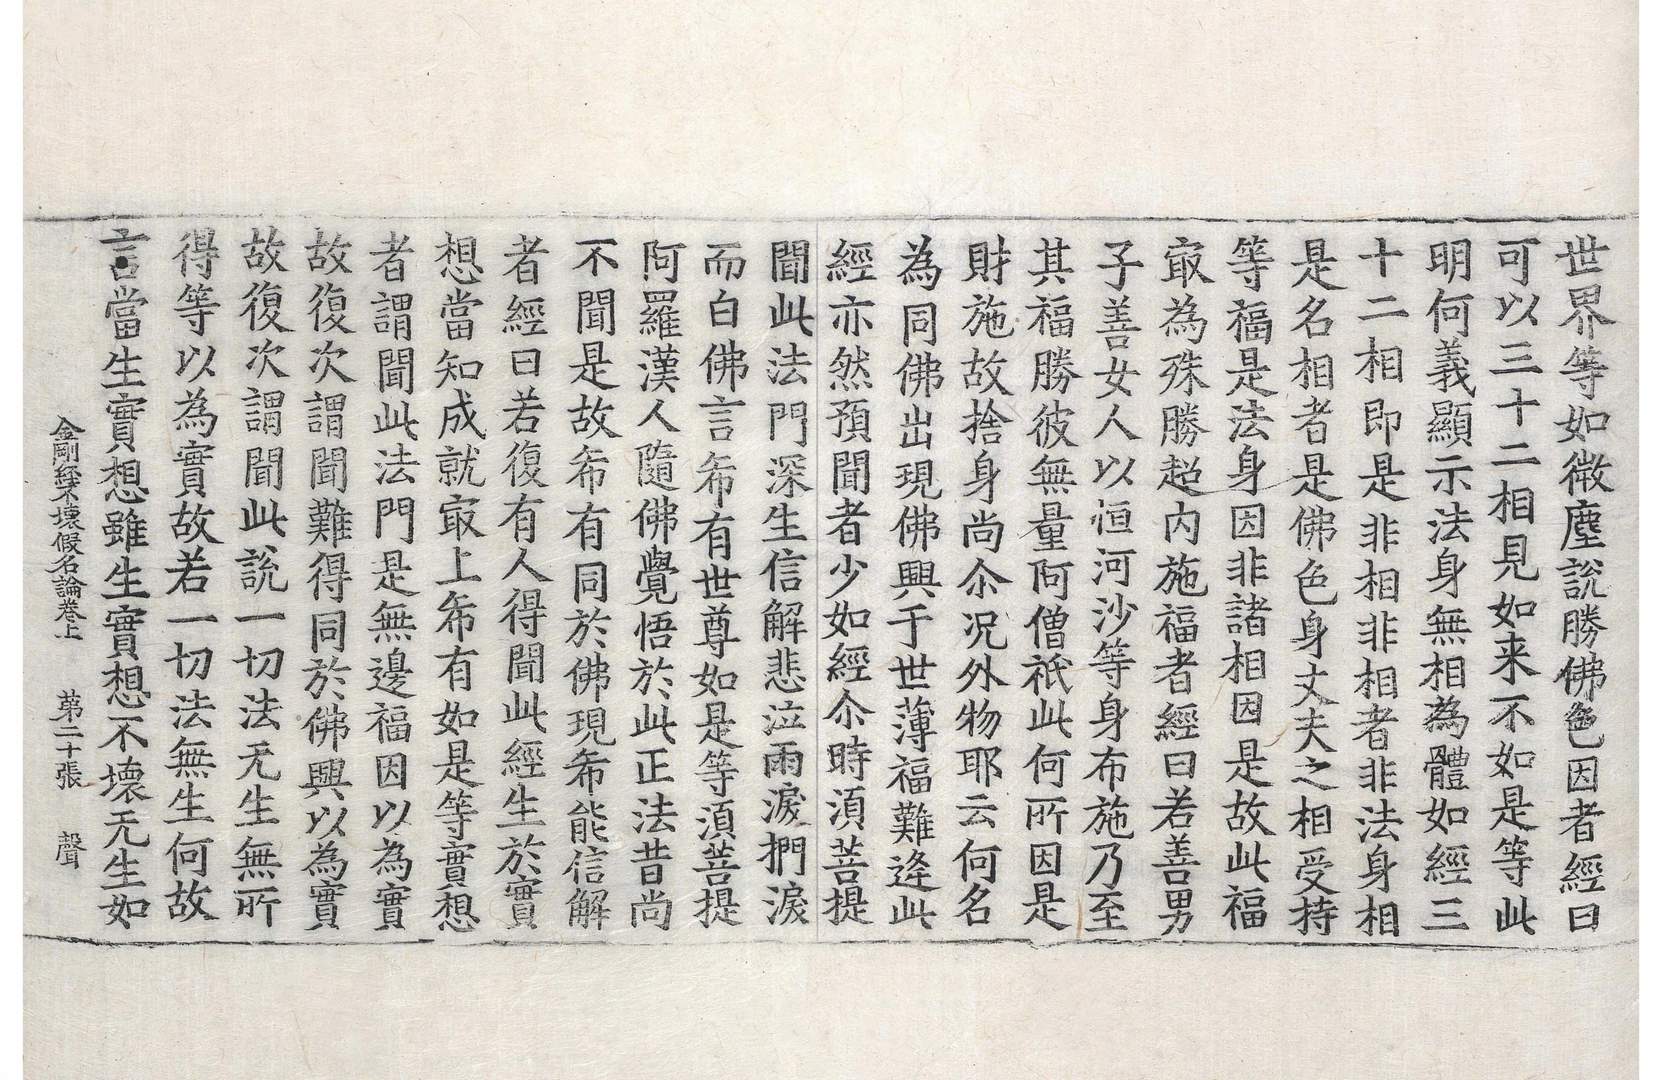 世界等如微塵說勝佛色因者經曰
可以三十二相見如来不如是等此
明何義顯示法身無相為體如經三
十二相即是非相非相者非法身相
是名相者是佛色身丈夫之相受持
等福是法身因非諸相因是故此福
㝡為殊勝超内施福者經曰若善男
子善女人以恒河沙等身布施乃至
其福勝彼無量阿僧祇此何所因是
財施故捨身尚尒况外物耶云何名
為同佛出現佛興于世薄福難逢此
經亦然預聞者少如經尒時湏菩提
聞此法門深生信解悲泣雨淚捫淚
而白佛言希有世尊如是等湏菩提
阿羅漢人隨佛覺悟於此正法昔尚
不聞是故希有同於佛現希能信解
者經曰若復有人得聞此經生於實
想當知成就㝡上希有如是等實想
者謂聞此法門是無邊福因以為實
故復次謂聞難得同於佛興以為實
故復次謂聞此說一切法无生無所
得等以為實故若一切法無生何故
言當生實想雖生實想不壞无生如
金剛經不壞假名論卷上　第二十張　聲